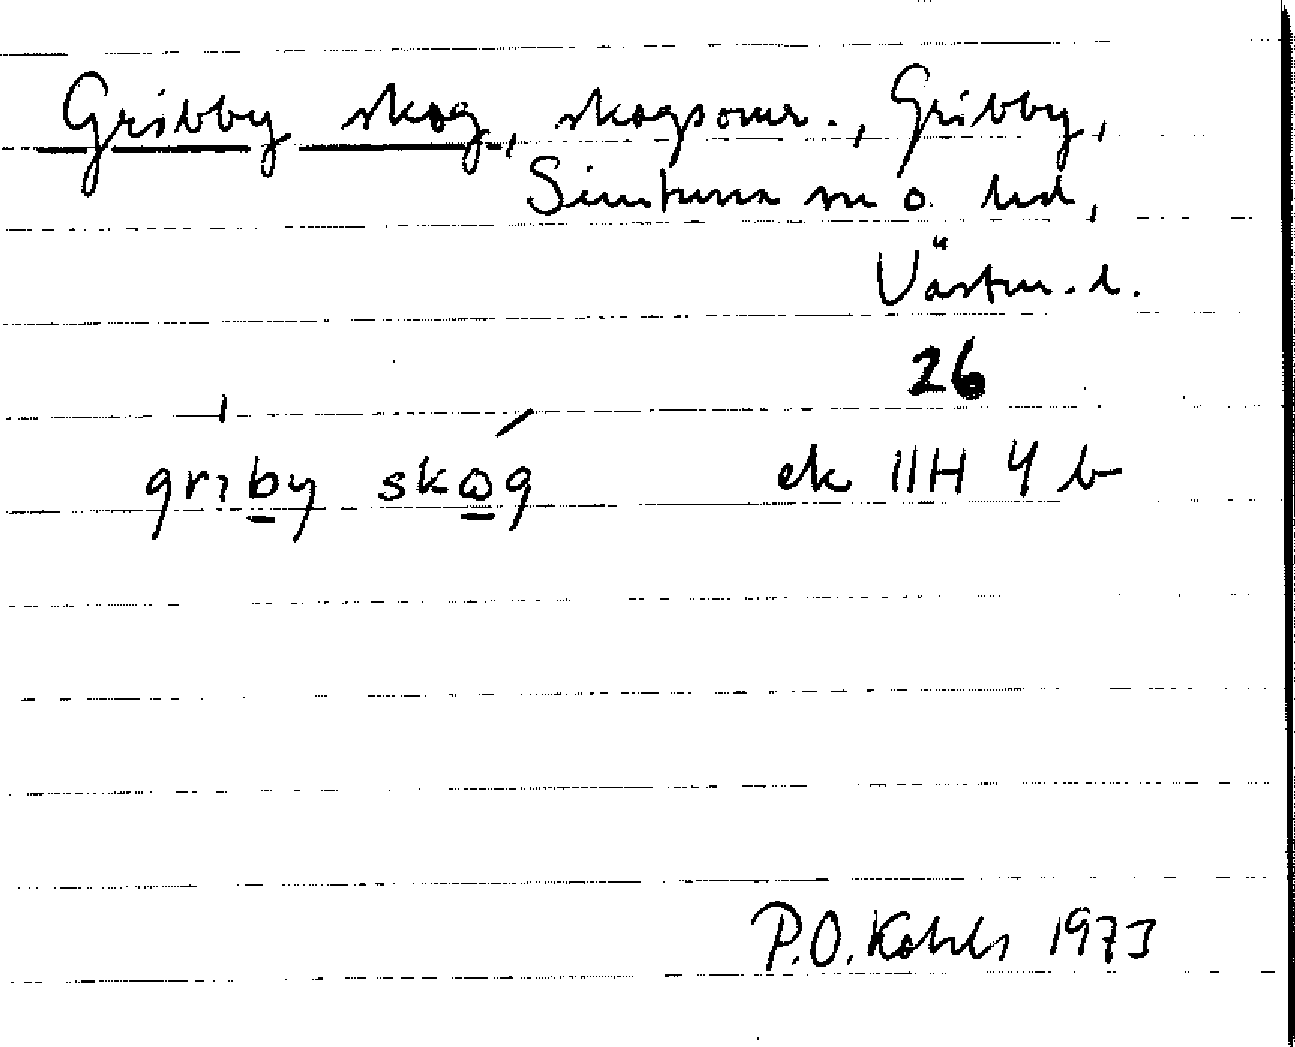 Gribby skog, skogsomr., Gribby,
Simtuna sn o. hd,
Västm. l.
26
griby skωg ek 11H 4 b
P.O. Kohls 1973